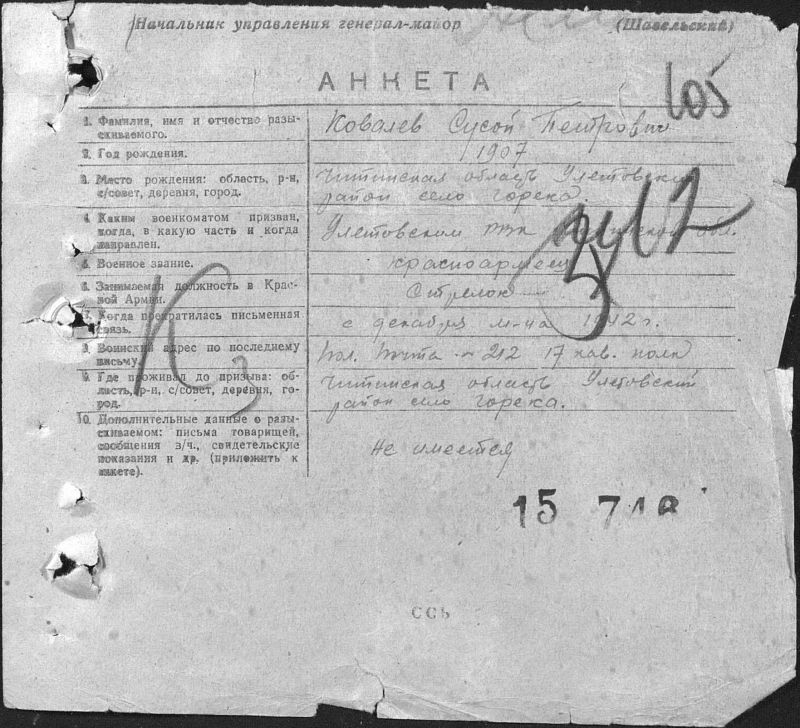 Начальник управления генерал-майор (Шавельский)
АНКЕТА
105
1. Фамилия, имя и отчество разыскиваемого.
Ковалев Сусой Петрович
2. Год рождения.
1907
3. Место рождения: область, р-н, с/совет, деревня, город.
Читинская область Улетовский
район село горека.
4. Каким военкоматом призван, когда, в какую часть и когда направлен.
Улетовским обл.
5. Военное звание.
Красноармеец
6. Занимаемая должность в Красной Армии.
Стрелок
7. Когда прекратилась письменная связь.
с декабря м-ца 1942 г.
8. Воинский адрес по последнему письму.
Пол. почта - 212 17 кав. полк
9. Где проживал до призыва: область, р-н, с/совет, деревня, город.
Читинская область Улетовский
район село горека.
10. Дополнительные данные о разыскиваемом: письма товарищей, сообщения в/ч., свидетельские показания и др. (приложить к анкете).
Не имеется
15 746
ССЬ